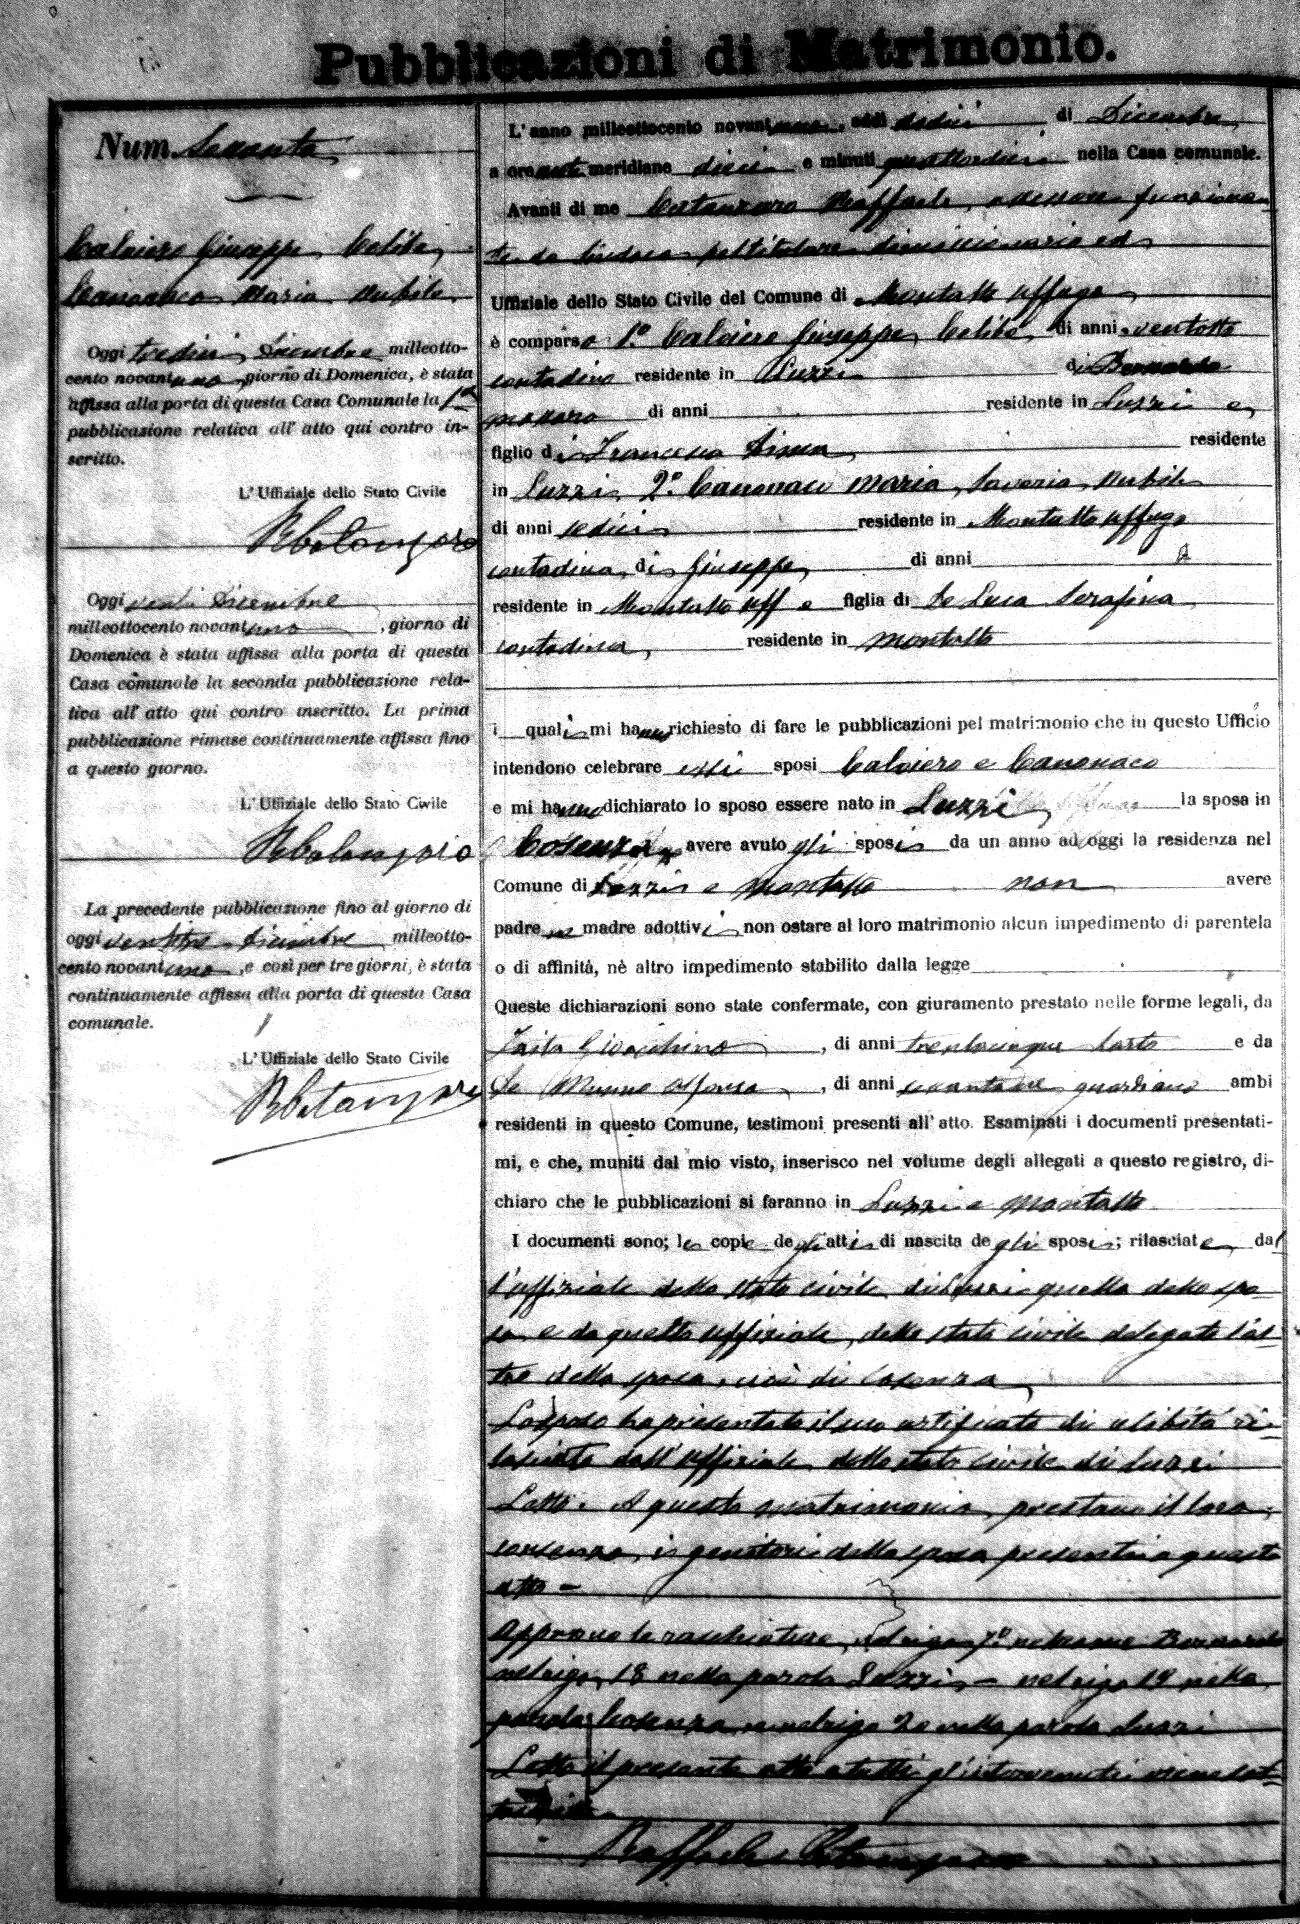 Pubblicazioni di Matrimonio.
Num. Sessanta
Calviero Giuseppe Celibe,
Canonaco Maria Nubile
Oggi tredici Dicembre milleotto-
cento novantuno, giorno di Domenica, è stata
affissa alla porta di questa Casa Comunale la 1ª
pubblicazione relativa all' atto qui contro in-
scritto.
L' Uffiziale dello Stato Civile
RCatanzaro
Oggi venti Dicembre
milleottocento novantuno, giorno di
Domenica è stata affissa alla porta di questa
Casa comunale la seconda pubblicazione rela-
tiva all' atto qui contro inscritto. La prima
pubblicazione rimase continuamente affissa fino
a questo giorno.
L' Uffiziale dello Stato Civile
RCatanzaro
La precedente pubblicazione fino al giorno di
oggi ventitre Dicembre milleotto-
cento novantuno, e così per tre giorni, è stata
continuamente affissa alla porta di questa Casa
comunale.
L' Uffiziale dello Stato Civile
RCatanzaro
L' anno milleottocento novantuno, addì dodici di Dicembre
a ore anti meridiane dieci e minuti quattordici nella Casa comunale.
Avanti di me Catanzaro Raffaele, assessore funzionan-
te da Sindaco pel titolare dimissionario ed
Uffiziale dello Stato Civile del Comune di Montalto Uffugo
è comparso 1.º Calviero Giuseppe, Celibe, di anni ventotto
contadino residente in Luzzi di Bernardo
massaro di anni residente in Luzzi e
figlio di Francesca residente
in Luzzi, 2.º Canonaco Maria, Saveria, Nubile
di anni sedici residente in Montalto Uffugo
contadina, di Giuseppe, di anni
residente in Montalto Uff e figlia di De Luca Serafina
contadina, residente in Montalto
i quali mi hanno richiesto di fare le pubblicazioni pel matrimonio che in questo Ufficio
intendono celebrare essi sposi Calviero e Canonaco
e mi hanno dichiarato lo sposo essere nato in Luzzi la sposa in
Cosenza, avere avuto gli sposi da un anno ad oggi la residenza nel
Comune di Luzzi e Montalto non avere
padre ne madre adottivi non ostare al loro matrimonio alcun impedimento di parentela
o di affinità, nè altro impedimento stabilito dalla legge
Queste dichiarazioni sono state confermate, con giuramento prestato nelle forme legali, da
Gioacchino, di anni trentacinque sarto e da
De Alfonso, di anni guardiano ambi
residenti in questo Comune, testimoni presenti all' atto. Esaminati i documenti presentati-
mi, e che, muniti dal mio visto, inserisco nel volume degli allegati a questo registro, di-
chiaro che le pubblicazioni si faranno in Luzzi e Montalto
I documenti sono; le copie degli atti di nascita degli sposi; rilasciate dal
l'uffiziale dello stato civile di Luzzi quella dello spo-
so, e da quello uffiziale dello stato civile delegato l'al-
tra della sposa, cioè di Cosenza
Lo sposo ha presentato il suo certificato di celibità ri-
lasciato dall'uffiziale dello stato civile di Luzzi
Letto. A questo matrimonio, prestano il loro
consenso, i genitori della sposa presenti a questo
atto -
Approvo le raschiature, nel rigo 7.º nel nome Bernardo
nel rigo 18 nella parola Luzzi - nel rigo 19 nella
parola Cosenza, e nel rigo 20 nella parola Luzzi
Letto il presente atto a tutti gl'intervenuti
Raffaele Catanzaro